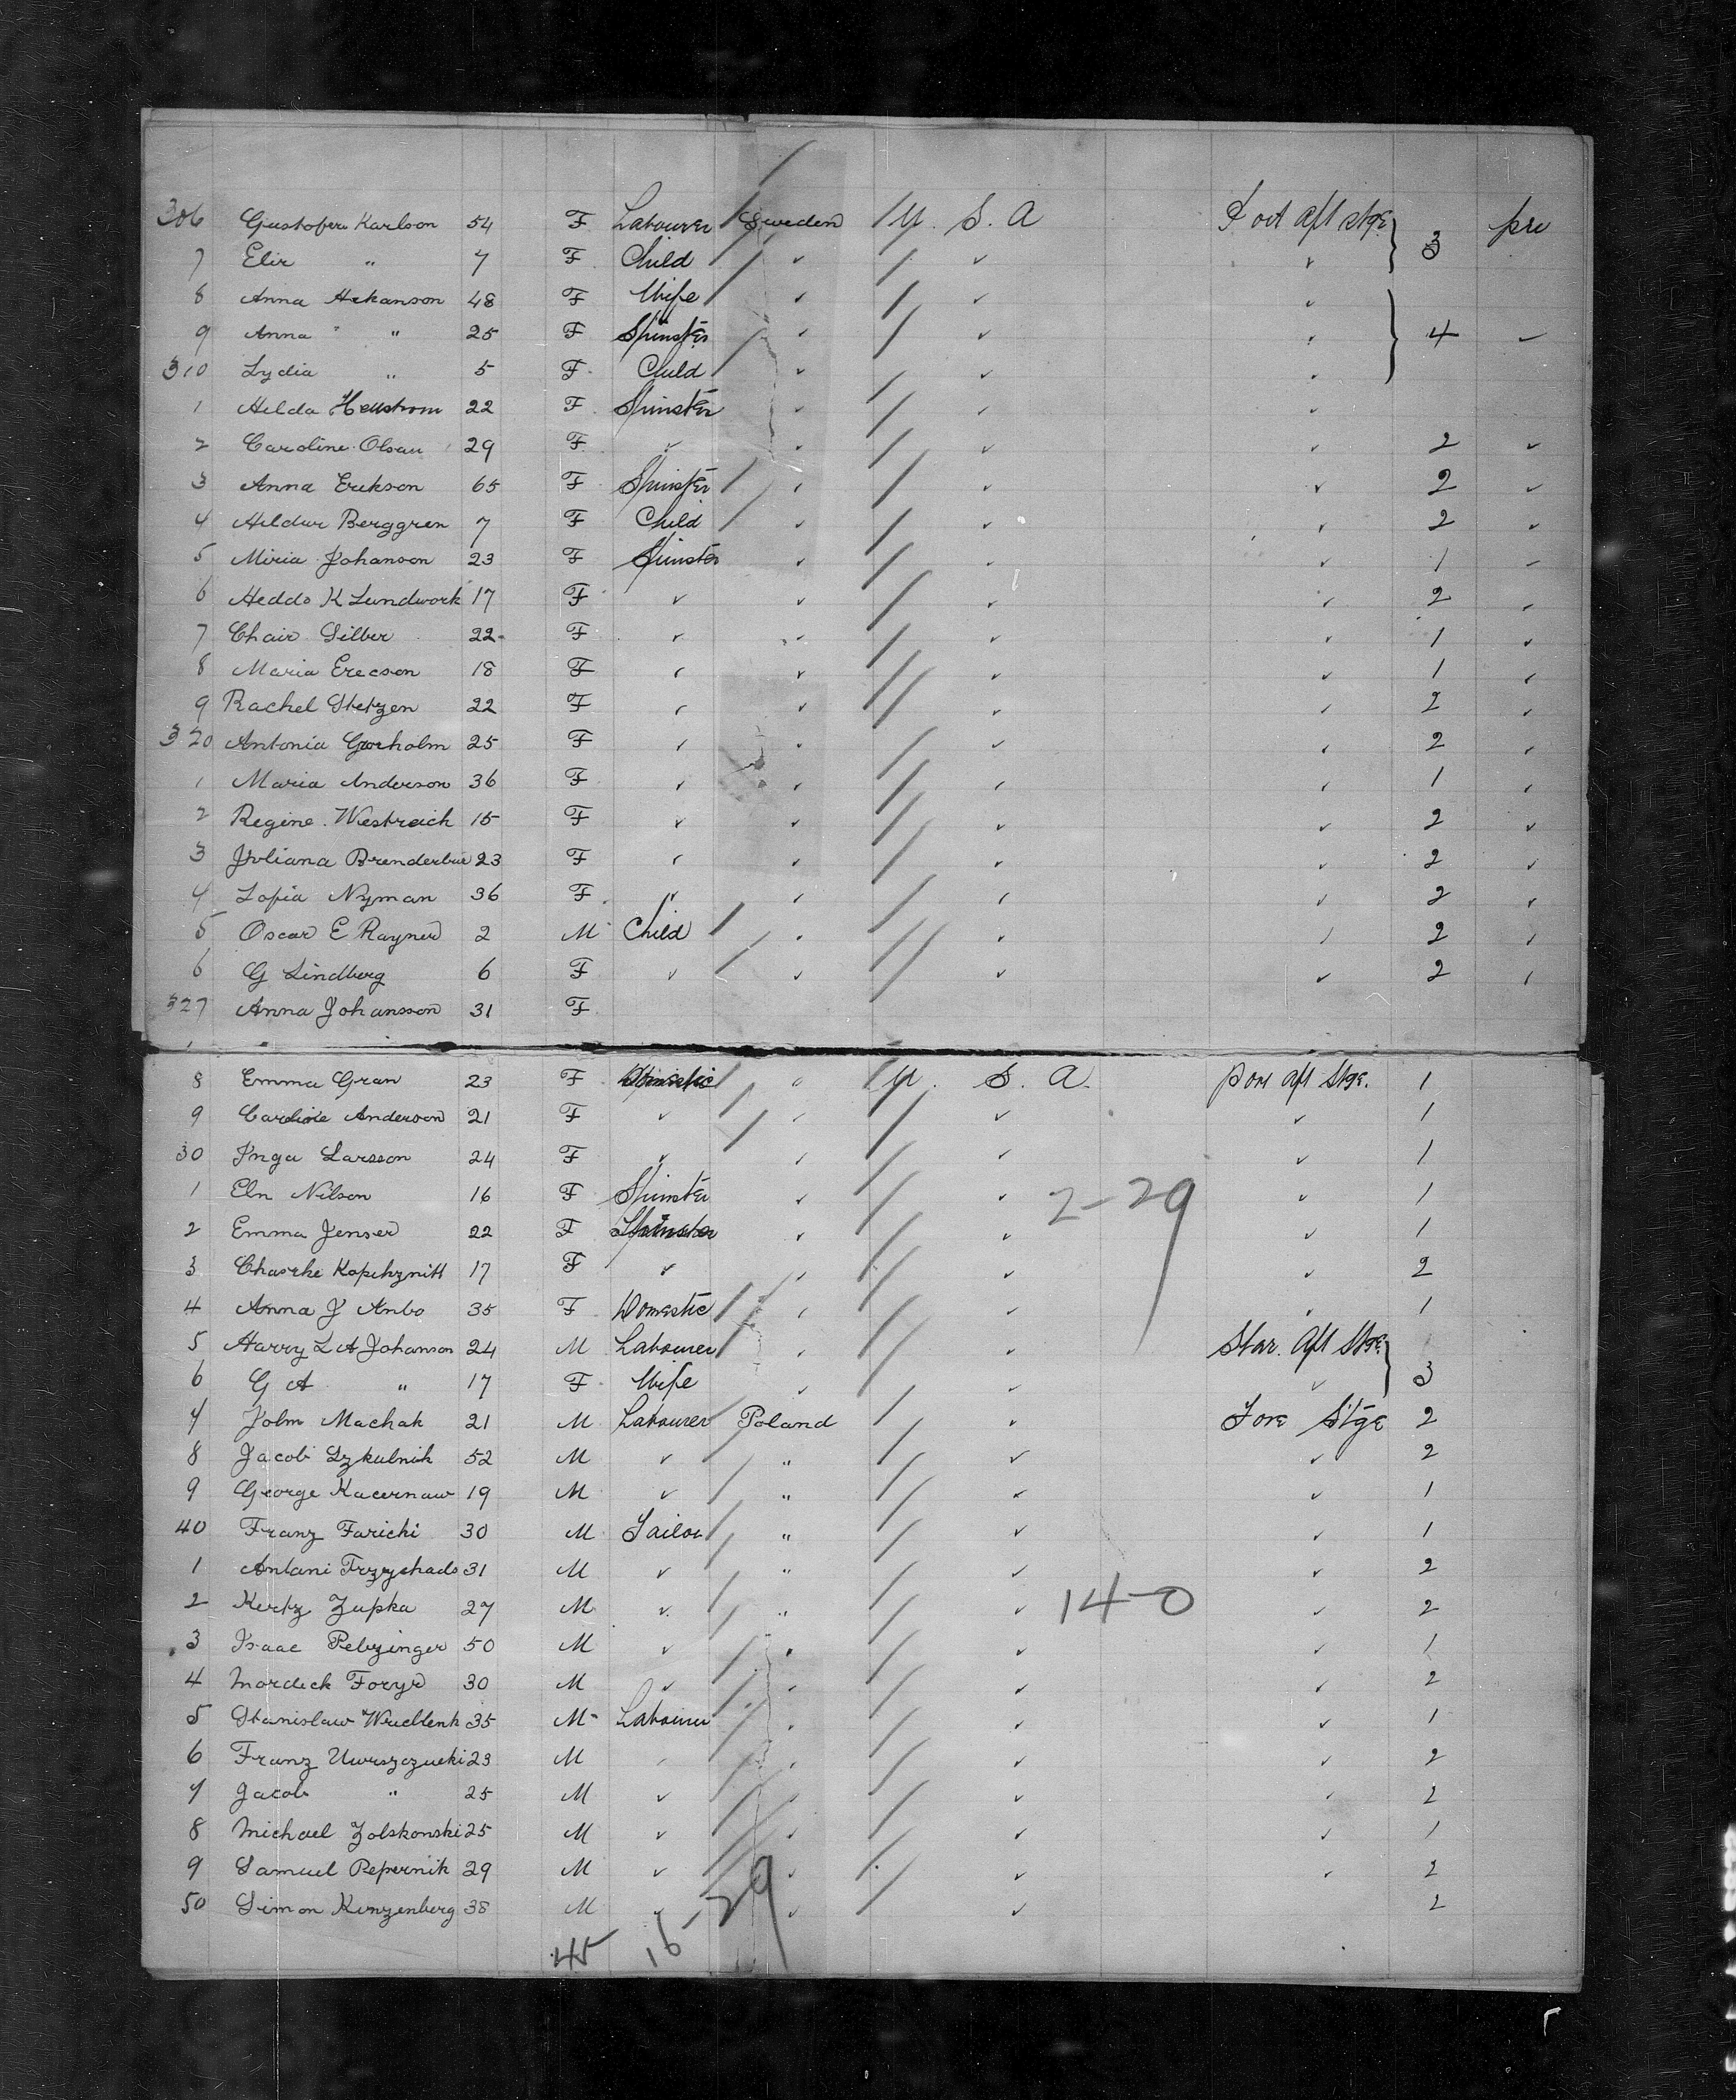 306 Gustofer Karlson 54 F Labourer Sweden U. S. A Port aft stge 3 pre
7 Elir " 7 F Child ✓ ✓ ✓
8 Anna Hakanson 48 F Wife ✓ ✓ ✓
9 Anna " 25 F Spinster ✓ ✓ ✓ 4 ✓
310 Lydia " 5 F Child ✓ ✓ ✓
1 Hilda Hellstrom 22 F Spinster ✓ ✓ ✓
2 Caroline Olsan 29 F ✓ ✓ ✓ ✓ 2 ✓
3 Anna Erekson 65 F Spinster ✓ ✓ ✓ 2 ✓
4 Hildur Berggren 7 F Child ✓ ✓ ✓ 2 ✓
5 Miria Johanson 23 F Spinster ✓ ✓ ✓ 1 ✓
6 Heddo K Lundwork 17 F ✓ ✓ ✓ ✓ 2 ✓
7 Chair Silber 22 F ✓ ✓ ✓ ✓ 1 ✓
8 Maria Erecson 18 F ✓ ✓ ✓ ✓ 1 ✓
9 Rachel Stetzen 22 F ✓ ✓ ✓ ✓ 2 ✓
320 Antonia Gorholm 25 F ✓ ✓ ✓ ✓ 2 ✓
1 Maria Anderson 36 F ✓ ✓ ✓ ✓ 1 ✓
2 Regine Westreich 15 F ✓ ✓ ✓ ✓ 2 ✓
3 Juliana 23 F ✓ ✓ ✓ ✓ 2 ✓
4 Sofia Nyman 36 F ✓ ✓ ✓ ✓ 2 ✓
5 Oscar E Rayner 2 M Child ✓ ✓ ✓ 2 ✓
6 G Lindberg 6 F ✓ ✓ ✓ ✓ 2 ✓
327 Anna Johansson 31 F
8 Emma Gran 23 F Domestic U. S. A. Port aft Stge. 1
9 Caroline Anderson 21 F ✓ ✓ ✓ ✓ 1
30 Inga Larsson 24 F ✓ ✓ ✓ ✓ 1
1 Eln Nilson 16 F Spinster ✓ ✓ 2-29 ✓ 1
2 Emma Jenser 22 F Spinster ✓ ✓ ✓ 1
3 Chasrke Kopchznitt 17 F ✓ ✓ ✓ ✓ 2
4 Anna J Anbo 35 F Domestic ✓ ✓ ✓ 1
5 Harry L A Johanson 24 M Labourer ✓ ✓ Star. Aft Stge
6 G A " 17 F Wife ✓ ✓ ✓ 3
7 John Machak 21 M Labourer Poland ✓ Fore Stge 2
8 Jacob Szkulnik 52 M ✓ " ✓ ✓ 2
9 George Kacernaw 19 M ✓ " ✓ ✓ 1
40 Franz Farichi 30 M Tailor " ✓ ✓ 1
1 Antani Trzyshado 31 M ✓ " ✓ ✓ 2
2 Kertz Zupka 27 M ✓ " ✓ 14-0 ✓ 2
3 Isaac Pelzinger 50 M ✓ " ✓ ✓ 1
4 Mordeck Foryd 30 M ✓ ✓ ✓ ✓ 2
5 Stanislaw Wrueblenk 35 M Labourer ✓ ✓ ✓ 1
6 Franz 23 M ✓ ✓ ✓ ✓ 2
7 Jacob " 25 M ✓ ✓ ✓ ✓ 2
8 Michael Zolskonski 25 M ✓ ✓ ✓ ✓ 1
9 Samuel Pepernik 29 M ✓ ✓ ✓ ✓ 2
50 Simon Kunzenberg 38 M ✓ ✓ ✓ 2
45 16-29